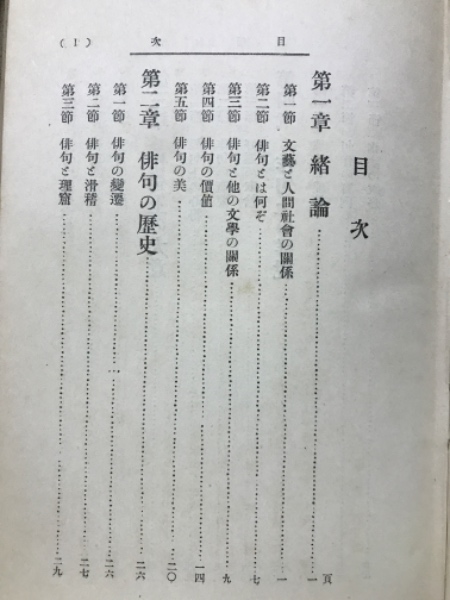 目次
(1)
目次
第一章 緒論……一頁
第一節 文藝と人間社會の關係……一
第二節 俳句とは何ぞ……七
第三節 俳句と他の文學の關係……九
第四節 俳句の價値……一四
第五節 俳句の美……二〇
第二章 俳句の歷史……二六
第一節 俳句の變遷……二六
第二節 俳句と滑稽……二七
第三節 俳句と理窟……二九